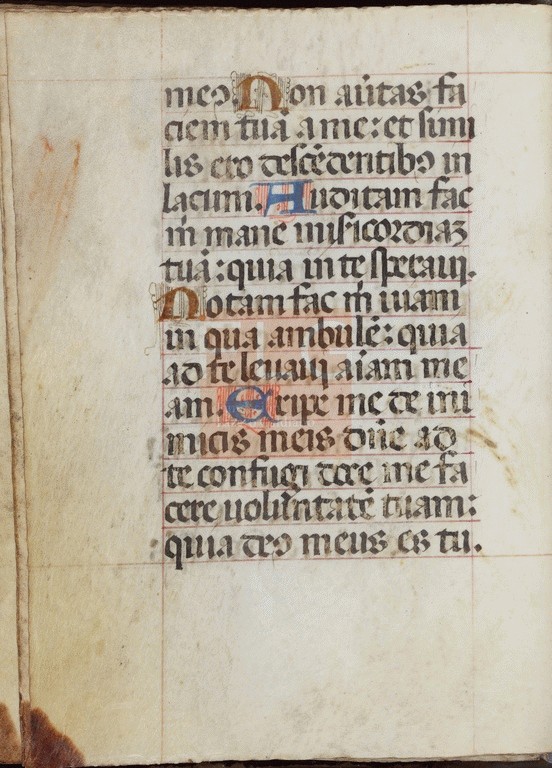 meꝯ. Non aũtas fa
ciem tuã a me: et simi
lis ero descẽdentibꝯ in
lacum. Auditam fac
m̃ mane misicordiaz
tuã: quia in te speraui.
Notam fac m̃ uiam
in qua ambulẽ: quia
ad te leuaui aiam me
am. Eripe me de ini
micis meis dñe ad
te confugi doce me fa
cere uolũntatẽ tuam:
quia deꝯ meus es tu.